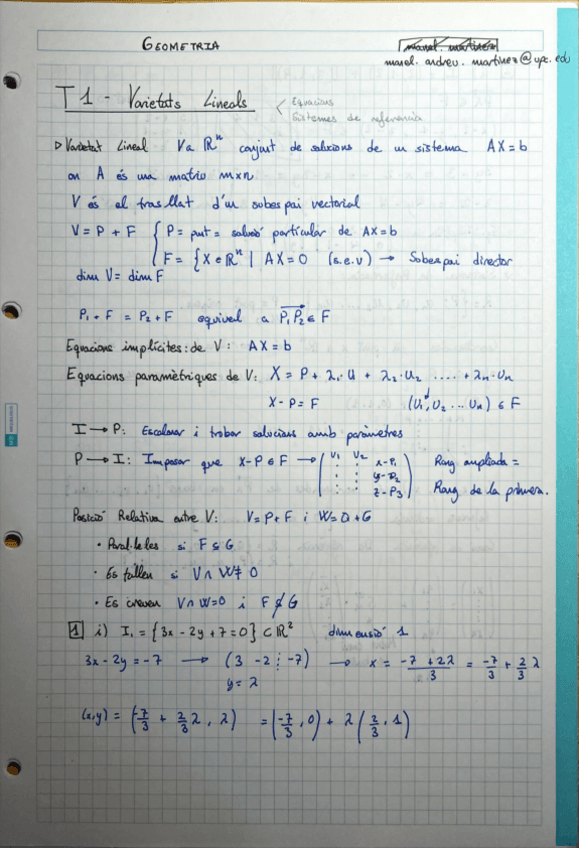 GEOMETRIA
manel. martinez
manel. andreu. martinez@upc.edu
T1 - Varietats Lineals < Equacions
Sistemes de referència
▷ Varietat Lineal V a ℝⁿ conjunt de solucions de un sistema AX=b
on A és una matriu mxn
V és el trasllat d'un subespai vectorial
V = P + F { P = punt = solució particular de AX=b
F = {X ∈ ℝⁿ | AX=0 (s.e.v) → Subespai director
dim V = dim F
P₁ + F = P₂ + F equival a P₁P₂ ∈ F
Equacions implícites: de V: AX = b
Equacions paramètriques de V: X = P + λ₁·u + λ₂·u₂ .... + λₙ·uₙ
X - P = F (u₁, u₂ ... uₙ) ∈ F
I → P: Escalonar i trobar solucions amb paràmetres
P → I: Imposar que X-P ∈ F → ( v₁ v₂ x-P₁ ) Rang ampliada =
: : y-P₂
: : z-P₃ Rang de la primera.
Posició Relativa entre V: V=P+F i W=Q+G
• Paral·leles si F ⊆ G
• Es tallen si V ∩ W ≠ 0
• Es creuen V∩W=0 i F ⊄ G
1 i) I₁ = {3x - 2y + 7 = 0} ⊂ ℝ² dimensió 1
3x - 2y = -7 → (3 -2 ⋮ -7) → x = (-7 + 2λ)/3 = -7/3 + 2/3 λ
y = λ
(x,y) = (-7/3 + 2/3 λ, λ) = (-7/3, 0) + λ (2/3, 1)